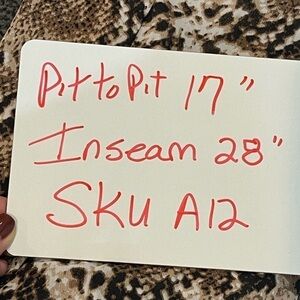 Pit to Pit 17"
Inseam 28"
SKU A12